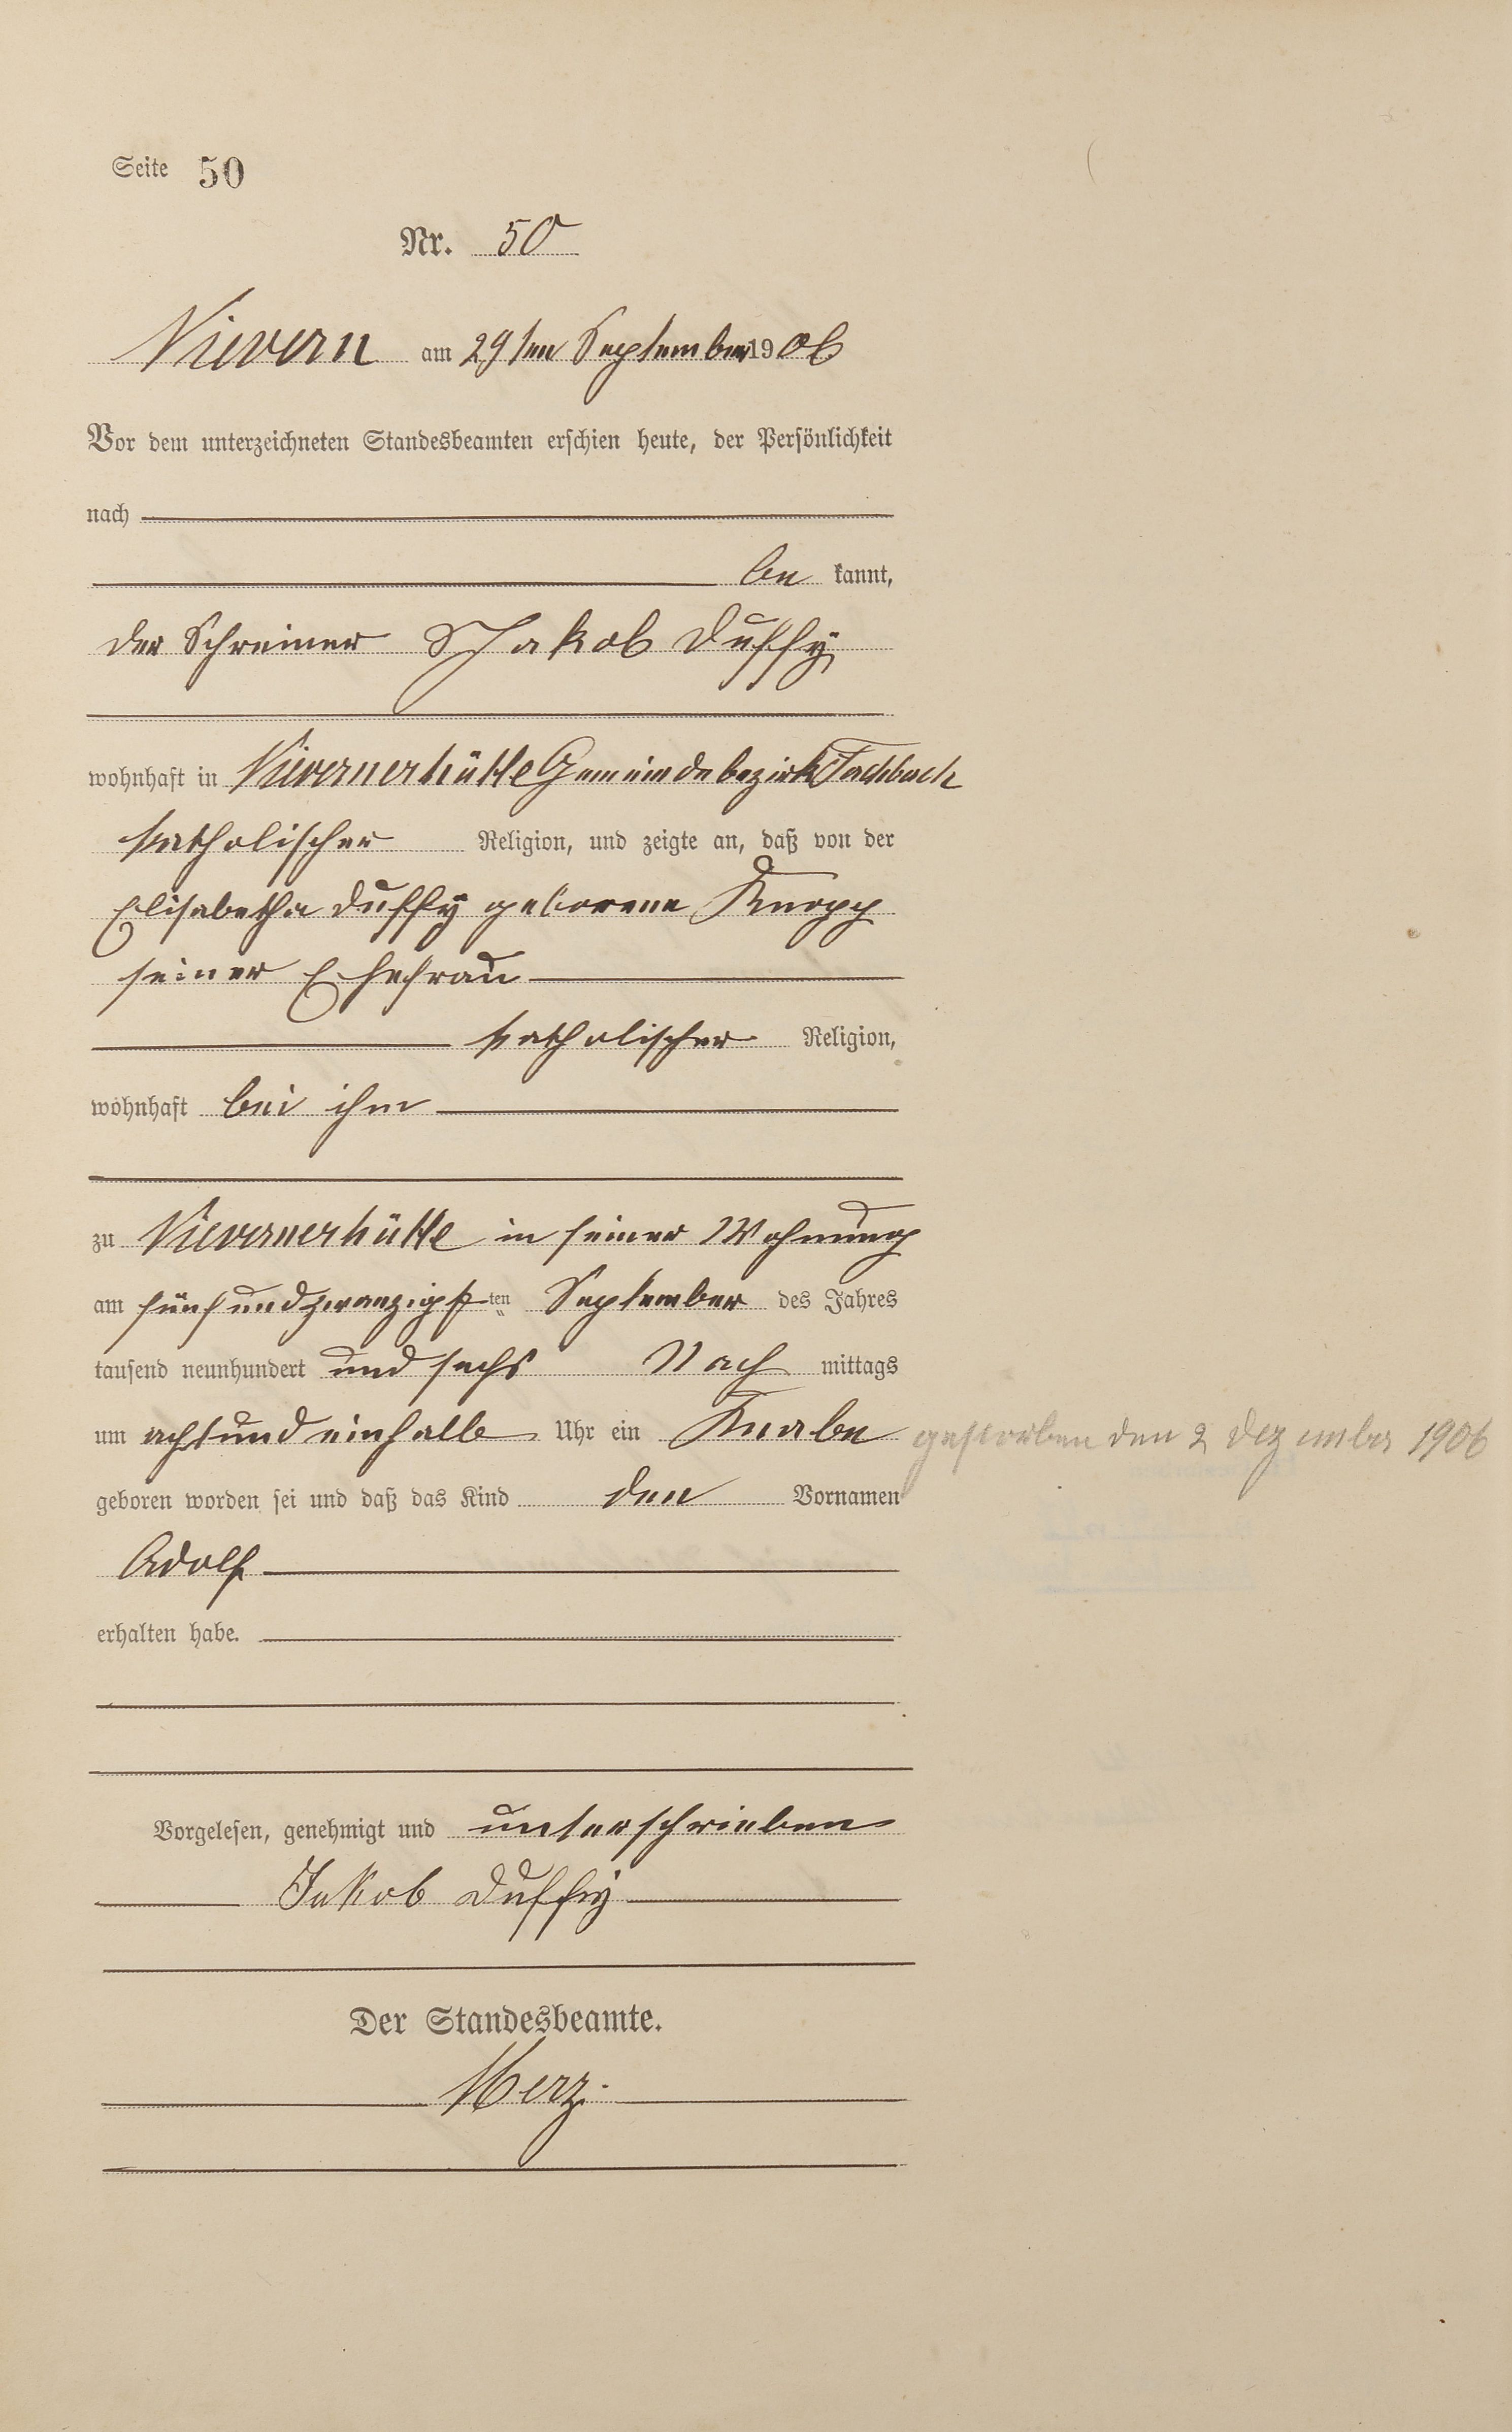 Seite 50
Nr. 50
Nievern am 29ten September 1906
Vor dem unterzeichneten Standesbeamten erschien heute, der Persönlichkeit
nach
be kannt,
der Schreiner Jakob Duffy
wohnhaft in Nievernerhütte Gemeindebezirk Fachbach
katholischer Religion, und zeigte an, daß von der
Elisabetha Duffy geborene Knopp
seiner Ehefrau
katholischer Religion,
wohnhaft bei ihm
zu Nievernerhütte in seiner Wohnung
am fünfundzwanzigsten September des Jahres
tausend neunhundert und sechs Nach mittags
um acht und einhalb Uhr ein Knabe gestorben den 2 Dezember 1906
geboren worden sei und daß das Kind den Vornamen
Adolf
erhalten habe.
Vorgelesen, genehmigt und unterschrieben
Jakob Duffy
Der Standesbeamte.
Merz.